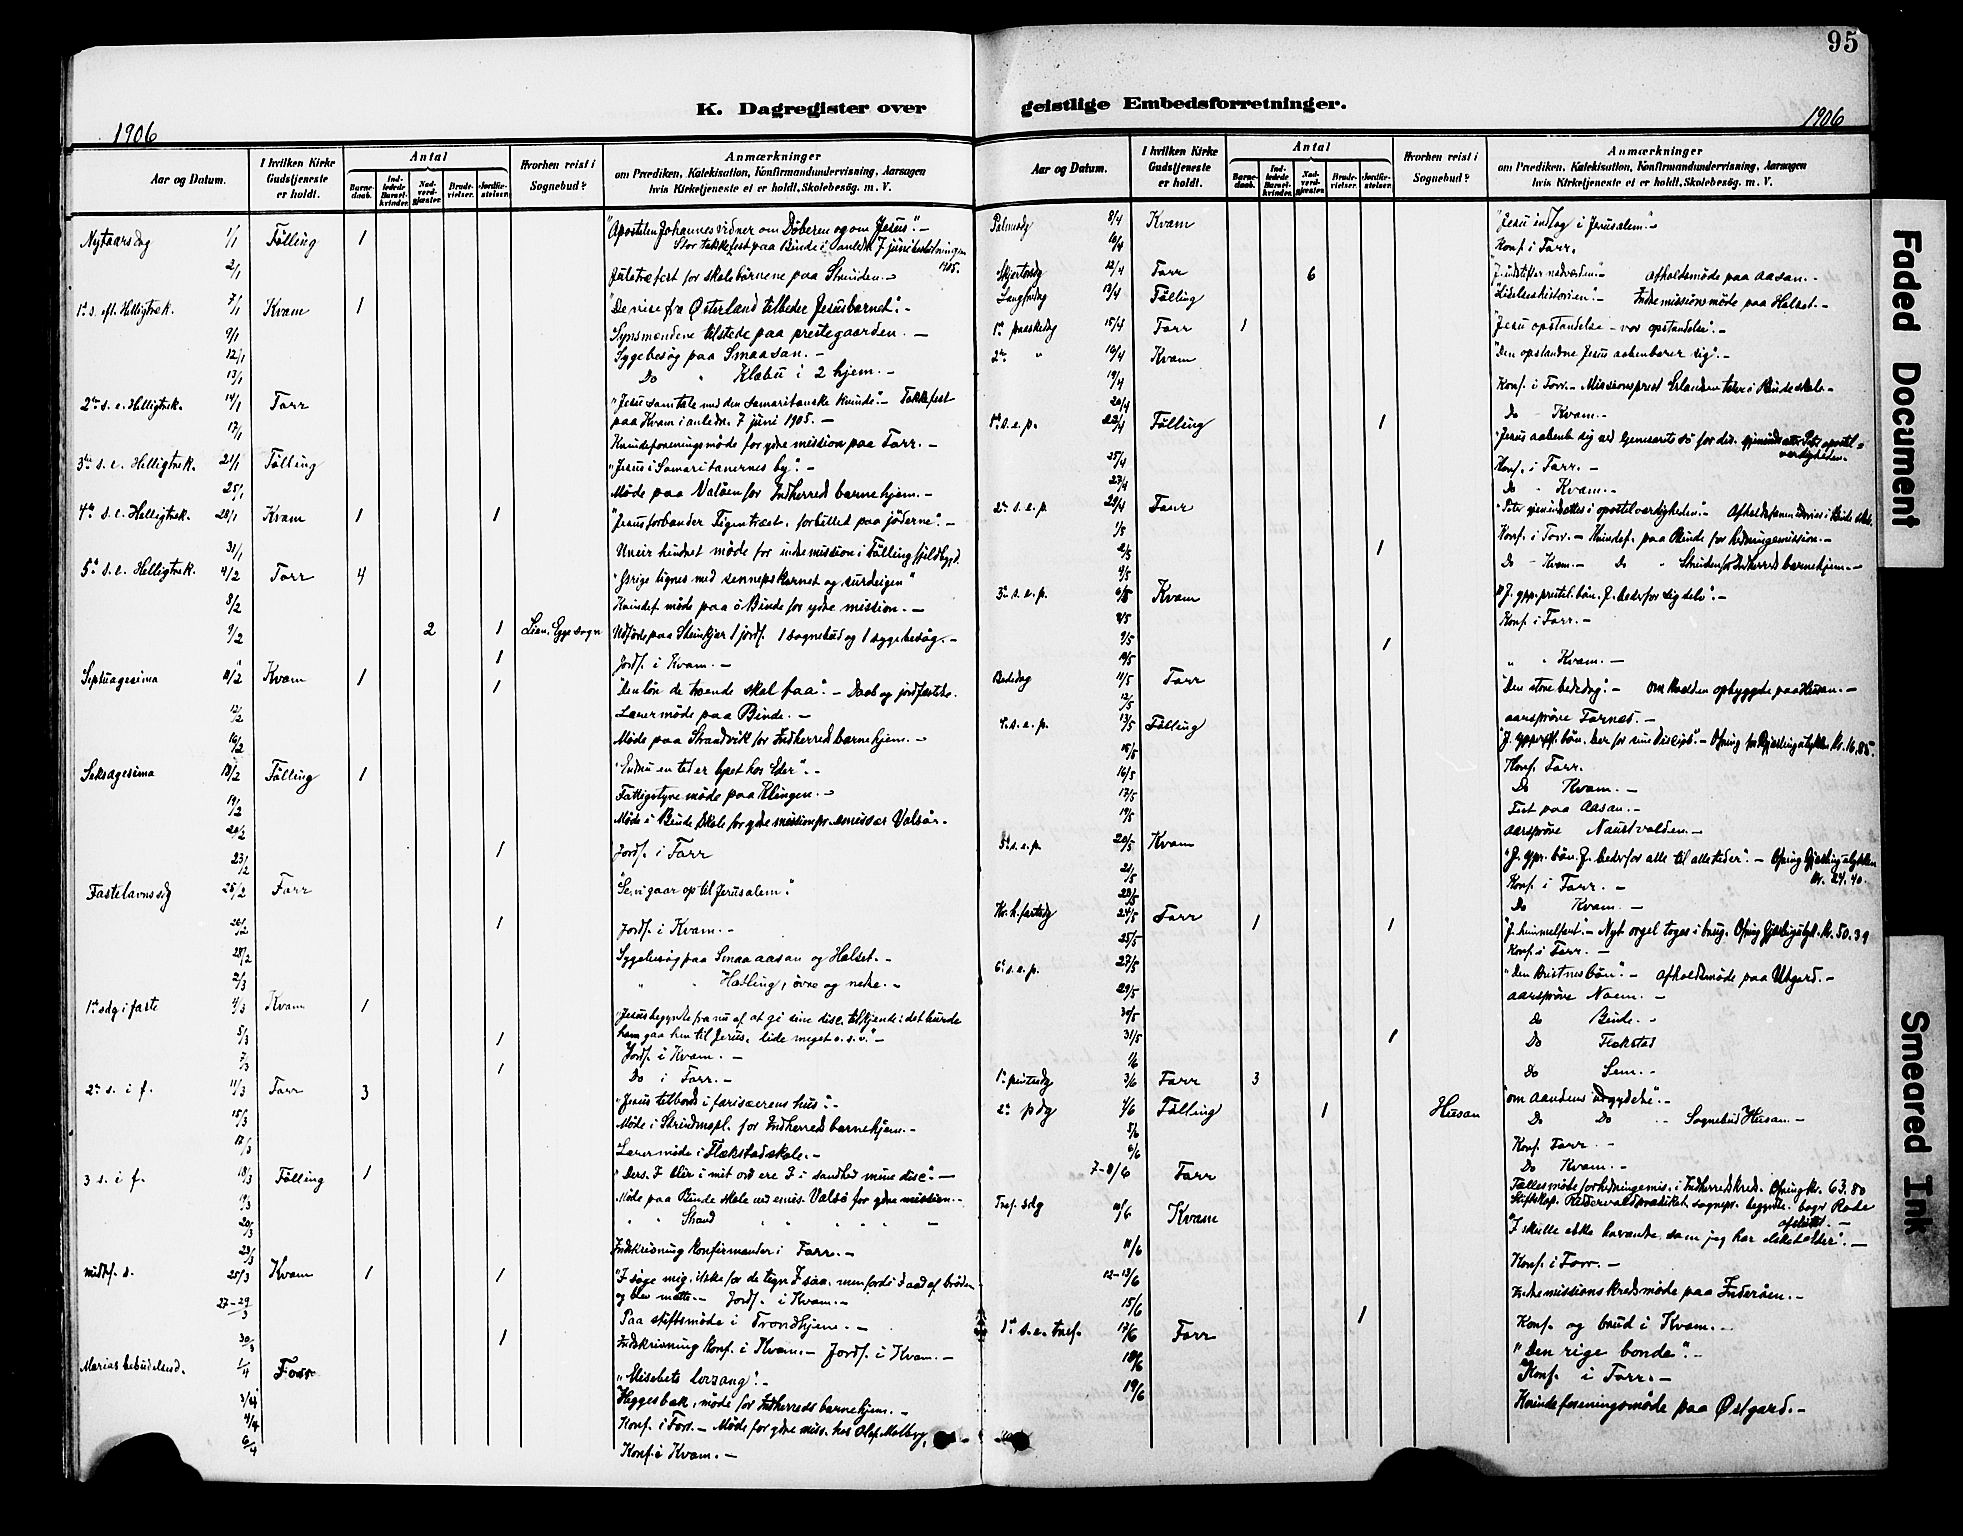 95
K. Dagregister over
geistlige Embedsforretninger.
1906
1906
Aar og Datum.
I hvilken Kirke Gudstjeneste er holdt.
Antal
Barnedaab.
Indledede Barselkvinder.
Nadverdgjæster.
Brudevielser.
Jordfæstelser.
Hvorhen reist i Sognebud?
Anmærkninger
om Prædiken, Katekisation, Konfirmandundervisning, Aarsagen
hvis Kirketjeneste ei er holdt, Skolebesøg. m. V.
Nytaarsdag 1/1 Følling 1 "Apostelen Johannes vidner om Døberen og om Jesus".-
Stor takkefest paa Binde i anledn. 7 juni beslutningen 1905.
2/1 Juletræfest for skolebørnene paa
1ste s. eft. Helligtrek. 7/1 Kvam 1 "De vise fra Østerland tilbeder Jesusbarnet".-
9/1 Synsmændene tilstede paa prestegaarden.-
12/1 Sygebesøg paa Smaasan.-
13/1 Do " Klæbu i 2 hjem.-
2den s. e. Helligtrek. 14/1 For "Jesu samtale med den Samaritanske kvinde".- Takkefest
17/1 paa Kvam i anledn. 7 juni 1905.-
Kvindeforeningsmøde for ydre mission paa For.-
3die s. e. Helligtrek. 21/1 Følling "Jesus i Samaritanernes by".-
25/1 Møde paa Valøen for Indherreds barnehjem.-
4de s. e. Helligtrek. 28/1 Kvam 1 1 "Jesus forbander Figentræet, forbillet paa jøderne".-
31/1 Uveir hindret møde for indremission i Følling fjeldbygd.
5te s. e. Helligtrek. 4/2 For 4 "Gsrige lignes med sennepskornet og surdeigen"
8/2 Kvindef. møde paa ø Binde for ydre mission.-
9/2 2 1 Lien, Egge sogn Udførte paa Steinkjær 1 jordf. 1 sognebud og 1 sygebesøg.-
1 Jordf. i Kvam.-
Septuagesima 11/2 Kvam 1 1 "Den løn de troende skal faa".- Daab og jordfæstelse.
12/2 Lærermøde paa Binde.-
16/2 Møde paa Strandvik for Indherreds barnehjem.-
Seksagesima 18/2 Følling 1 "Endnu en tid er lyset hos Eder".-
19/2 Fattigstyremøde paa Klingen.-
20/2 Møde i Binde skole for ydre mission
23/2 1 Jordf. i For
Fastelavnssdg 25/2 For "Se, vi gaar op til Jerusalem".
26/2 1 Jordf. i Kvam.-
28/2 Sygebesøg paa Smaaaasan og Halset.-
2/3 " " Hælling, øvre og nedre.-
1ste sdg i faste 4/3 Kvam 1 "Jesus begyndte fra nu af at gi sine disc. tilkjende: det burde
5/3 1 ham gaa hen til Jerus. lide meget o.s.v."-
7/3 Jordf. i Kvam.-
1 Do i For.-
2den s. i f. 11/3 For 3 "Jesus tilbords i farisæerens hus".-
15/3 Møde i for Indherreds barnehjem.-
17/3 Lærermøde i Flekstad skole.-
3 s. i f. 18/3 Følling 1 "Ders. I blir i mit ord ere I i sandhed mine disc".-
19/3 Møde paa Binde skole ved emis. Valsø for ydre mission.-
20/3 " " Strand " " " " " -
23/3 Indskrivning konfirmander i For.-
midtf. s. 25/3 Kvam 1 1 "I søge mig, ikke for de tegn I saa, men fordi I aad af brøden
og blev mætte.- Jordf. i Kvam.-
27-29/3 Paa stiftsmøde i Trondhjem.-
30/3 1 Indskrivning konf. i Kvam.- Jordf. i Kvam.-
Marias bebudelsesd. 1/4 For "Elisebets lovsang".-
3/4 Heggesbak, møde for Indherreds barnehjem.-
4/4 Konf. i For.- Møde for ydre miss. hos Olaf Melby,
6/4 Konf. i Kvam.-
Aar og Datum.
I hvilken Kirke Gudstjeneste er holdt.
Antal
Barnedaab.
Indledede Barselkvinder.
Nadverdgjæster.
Brudevielser.
Jordfæstelser.
Hvorhen reist i Sognebud?
Anmærkninger
om Prædiken, Katekisation, Konfirmandundervisning, Aarsagen
hvis Kirketjeneste ei er holdt, Skolebesøg. m. V.
Palmesdg 8/4 Kvam "Jesu indtog i Jerusalem".-
10/4 Konf. i For.
Skjertorsdg 12/4 For 6 "J. indstifter nadverden".- Afholdsmøde paa Aasan.-
Langfredg 13/4 Følling "Lidelseshistorien".- Indremissionsmøde paa Halset.-
1ste paaskedg 15/4 For 1 "Jesu opstandelse - vor opstandelse".-
2den " 16/4 Kvam "Den opstandne Jesus aabenbarer sig".-
19/4 Konf. i For.- Missionsprest Erlandsen taler i Binde skole.-
20/4 Do - Kvam.-
1ste s. e. p. 22/4 Følling 1 "Jesus aabenb. sig ved Genesarets sø for disc. gjenindsætter Peter apostelværdigheden.-
25/4 Konf. i For.-
27/4 Do " Kvam.-
2den s. e. p. 29/4 For "Peter gjenindsættes i apostelværdigheden".-
1/5 Konf. i For.- Kvindef. paa Binde for hedningemission.-
2/5 1
4/5 Do - Kvam.- Do " for Indherreds barnehjem.-
3die s. e. p. 6/5 Kvam "J. ypp. prestel. bøn. J. beder for sig selv".-
8/5 Konf. i For.-
9/5 1
10/5 " " Kvam.-
Bededag 11/5 For "Den store bededag".- paa Husan.-
12/5 Aarsprøve Fornes.-
4. s. e. p. 13/5 Følling "J. ypperstpr. bøn, ber for sine disciple".- Ofring kr. 16,85.
15/5 Konf. For.
16/5 Do Kvam.-
17/5 Fest paa Aasan.-
19/5 Aarsprøve Naustvolden.-
5te s. e. p. 20/5 Kvam "J. ypr. bøn. J. beder for alle til alle tider".- Ofring Gjæslingulykken
kr. 24.40.
21/5 Konf. i For.-
23/5 Do Kvam.-
Kr. h. fartsdg 24/5 For 1 1 "J. himmelfart".- Nyt orgel toges i brug. Ofring kr. 50.39
25/5 Konf. i For.-
6te s. e. p. 27/5 "Den kristnes bøn".- Afholdsmøde paa Utgard.-
29/5 Aarsprøve Noem.-
30/5 Do Binde.-
31/5 1 Do Flekstad
1/6 Do Sem.-
1ste pintsedg 3/6 For 3 "Om Aandens udgydelse".-
2den pdg 4/6 Følling 1 Husan Do Do .- Sognebud Husan.-
5/6 Konf. For.-
6/6 Do Kvam.-
7-8/6 For Fællesmøde for hedningemis. i Indherredskreds. Ofring kr. 63.80
Tref. sdg 10/6 Kvam "I skulle elske hverandre, som jeg har elsket eder".-
11/6 Konf. i For.-
12-13/6 Indremissions kredsmøde paa Inderøen.-
15/6 1 Konf. og brud i Kvam.-
1ste s. e. tref. 17/6 For "Den rige bonde".-
18/6 Konf. i For.-
19/6 Kvindeforeningsmøde paa Østgard.-
Faded Document
Smeared Ink